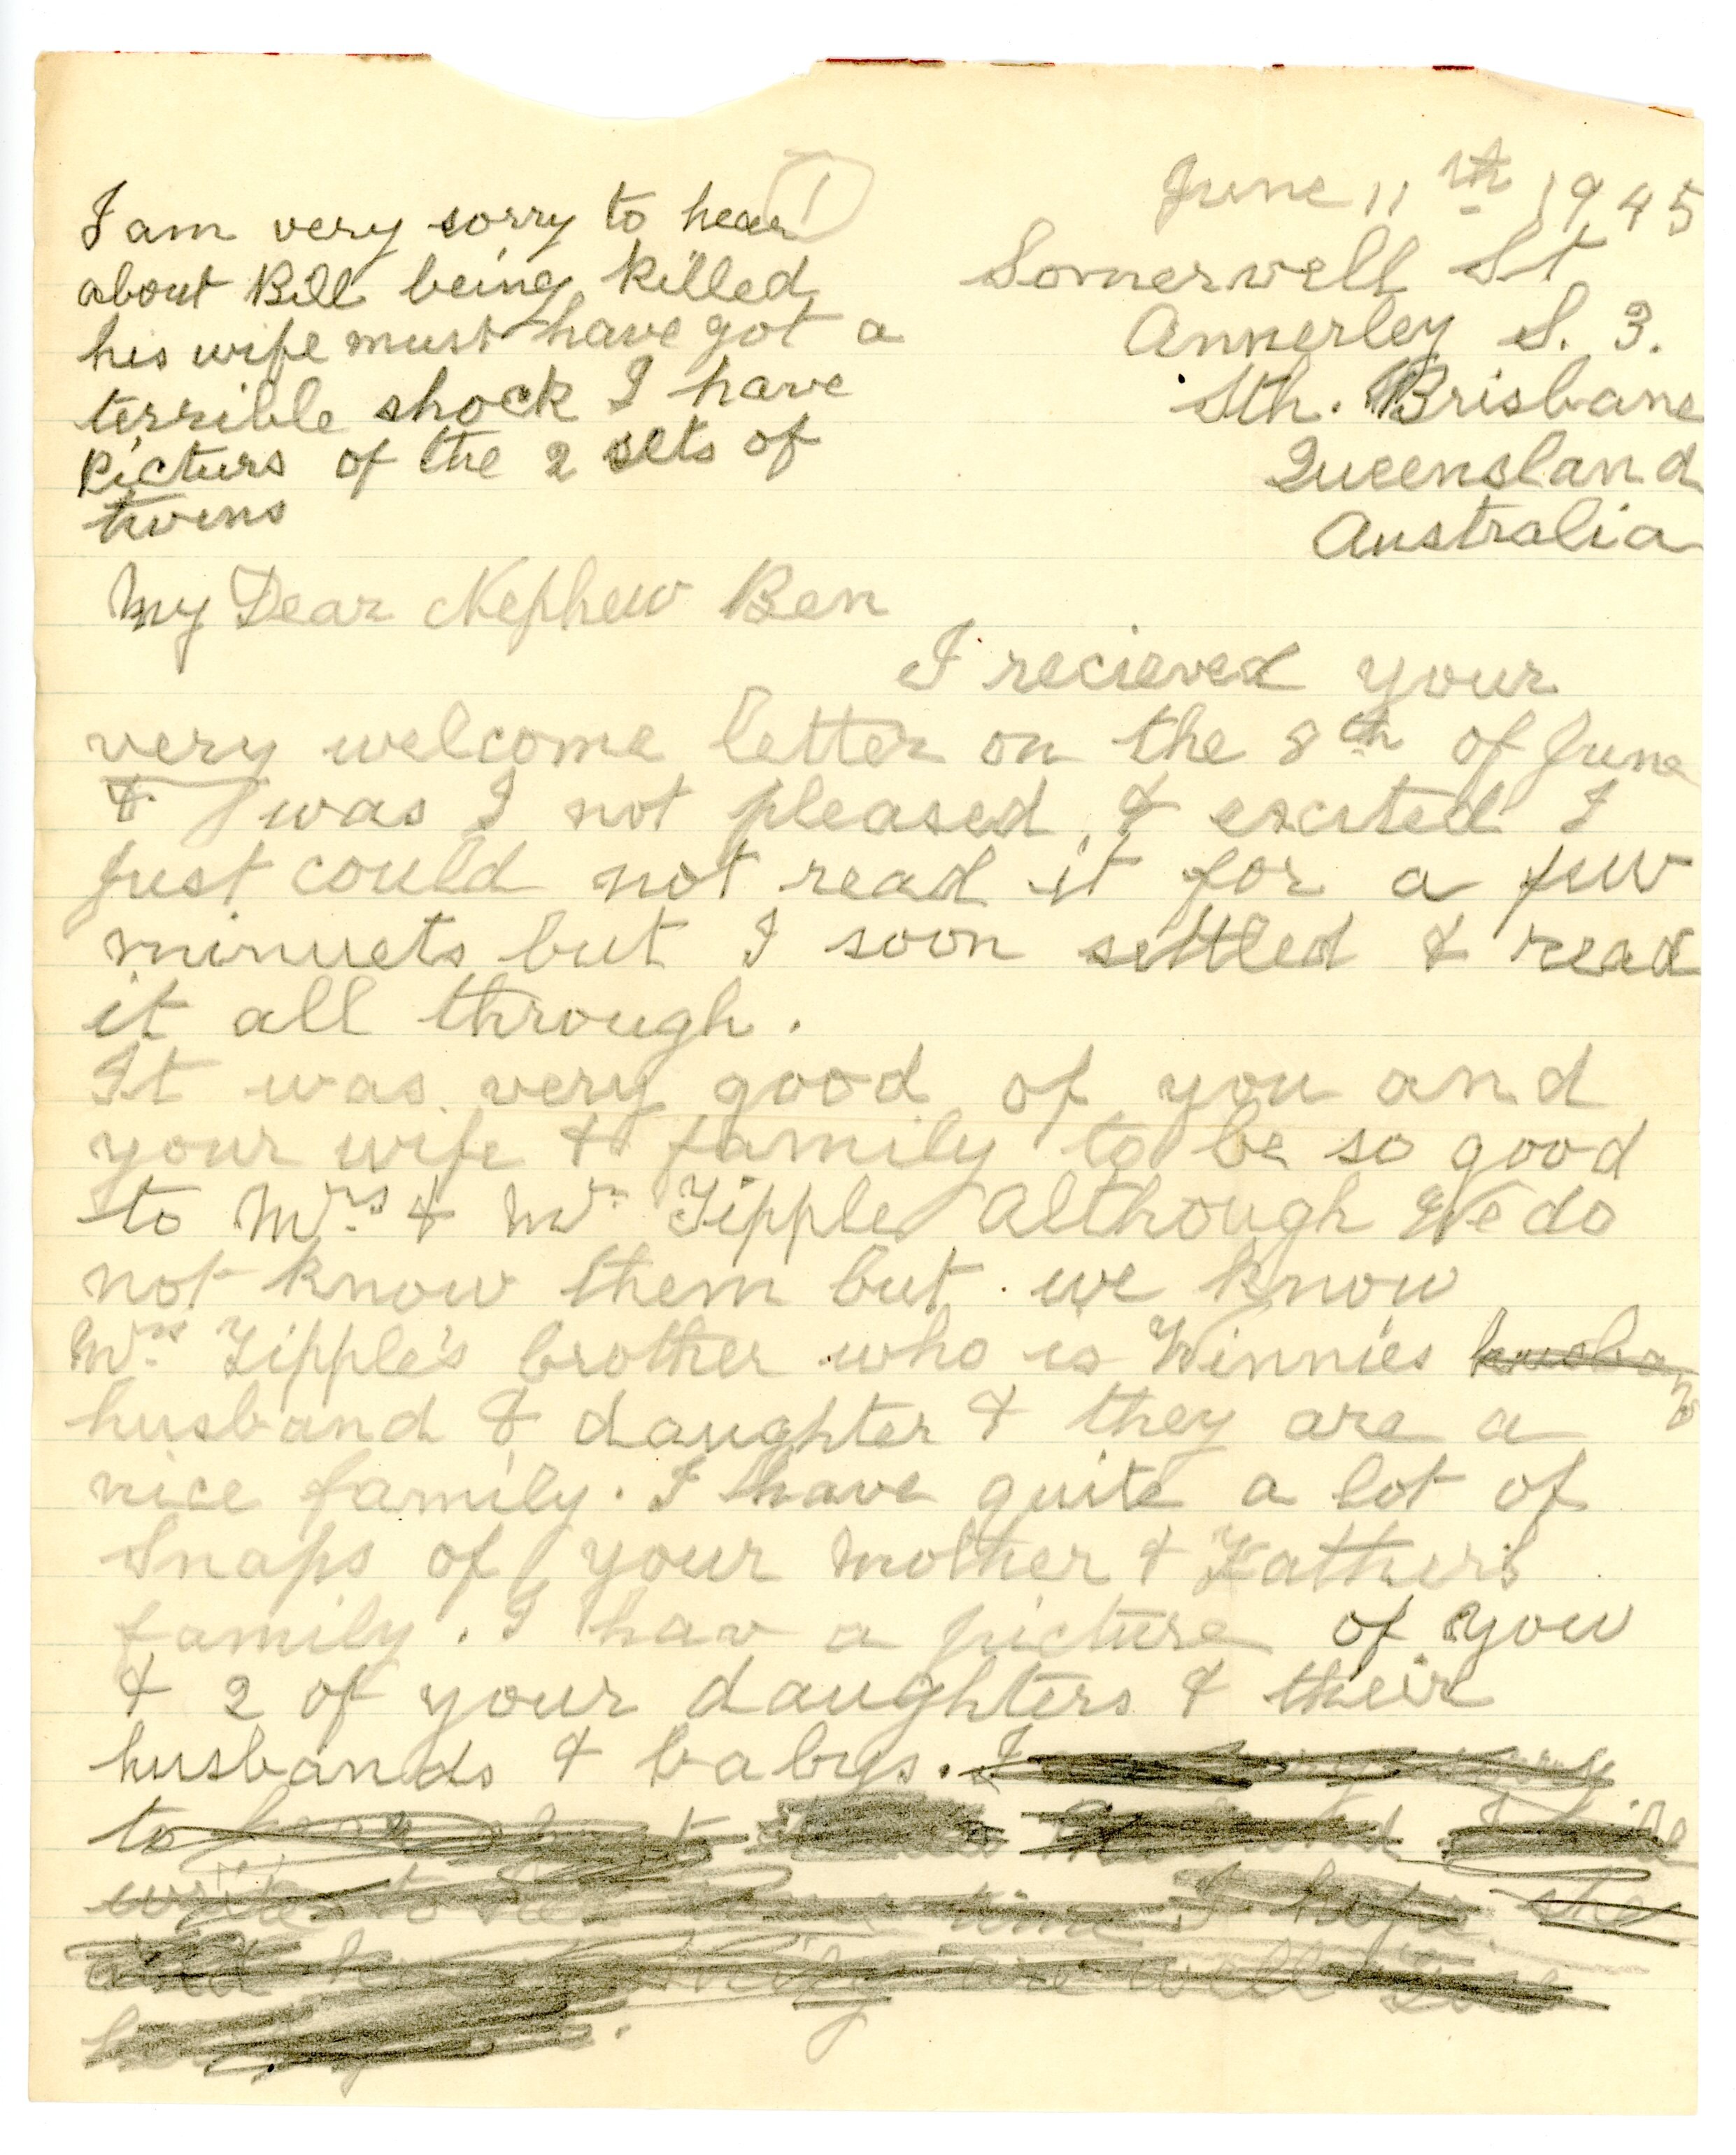 1
June 11th 1945
Somerwell St
Annerley S. 3.
Sth. Brisbane
Queensland
Australia
I am very sorry to hear
about Bill being killed
his wife must have got a
terrible shock I have
picturs of the 2 sets of
twins
My Dear Nephew Ben
I recieved your
very welcome letter on the 8th of June
& was I not pleased & excited I
just could not read it for a few
minuets but I soon settled & read
it all through.
It was very good of you and
your wife & family to be so good
to Mrs & Mr Tipple Although We do
not know them but we know
Mrs Tipple's brother who is Winnies husban
husband & daughter & they are a
nice family. I have quite a lot of
Snaps of your Mother & Fathers
family. I hav a picture of you
& 2 of your daughters & their
husbands & babys. I
to
write to I hope she
are well